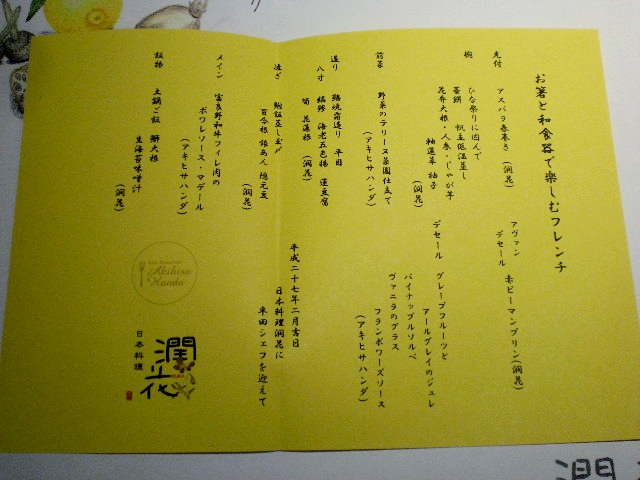 お箸と和食器で楽しむフレンチ
先付
アスパラ春巻き (潤花)
椀
ひな祭りに因んで
蓬餅 帆立低温蒸し
花弁大根・人参・じゃが芋
柚蓮草 柚子
(潤花)
前菜
野菜のテリーヌ菜園仕立て
(アキヒサハンダ)
造り
焼霜造り 平目
八寸
海老五色揚 蓮豆腐
筍 花蓮根 (潤花)
凌ぎ
鮑飯蒸し
百合根 銀あん 隠元豆
(潤花)
メイン
富良野和牛フィレ肉の
ポワレソース・マデール
(アキヒサハンダ)
飯物
土鍋ご飯 鰤大根
生海苔味噌汁
(潤花)
アヴァン
デセール 赤ピーマンプリン(潤花)
デセール グレープフルーツと
アールグレイのジュレ
パイナップルソルベ
ヴァニラのグラス
フランボワーズソース
(アキヒサハンダ)
平成二十七年二月吉日
日本料理潤花に
半田シェフを迎えて
Akihisa
Handa
日本料理
潤花
潤